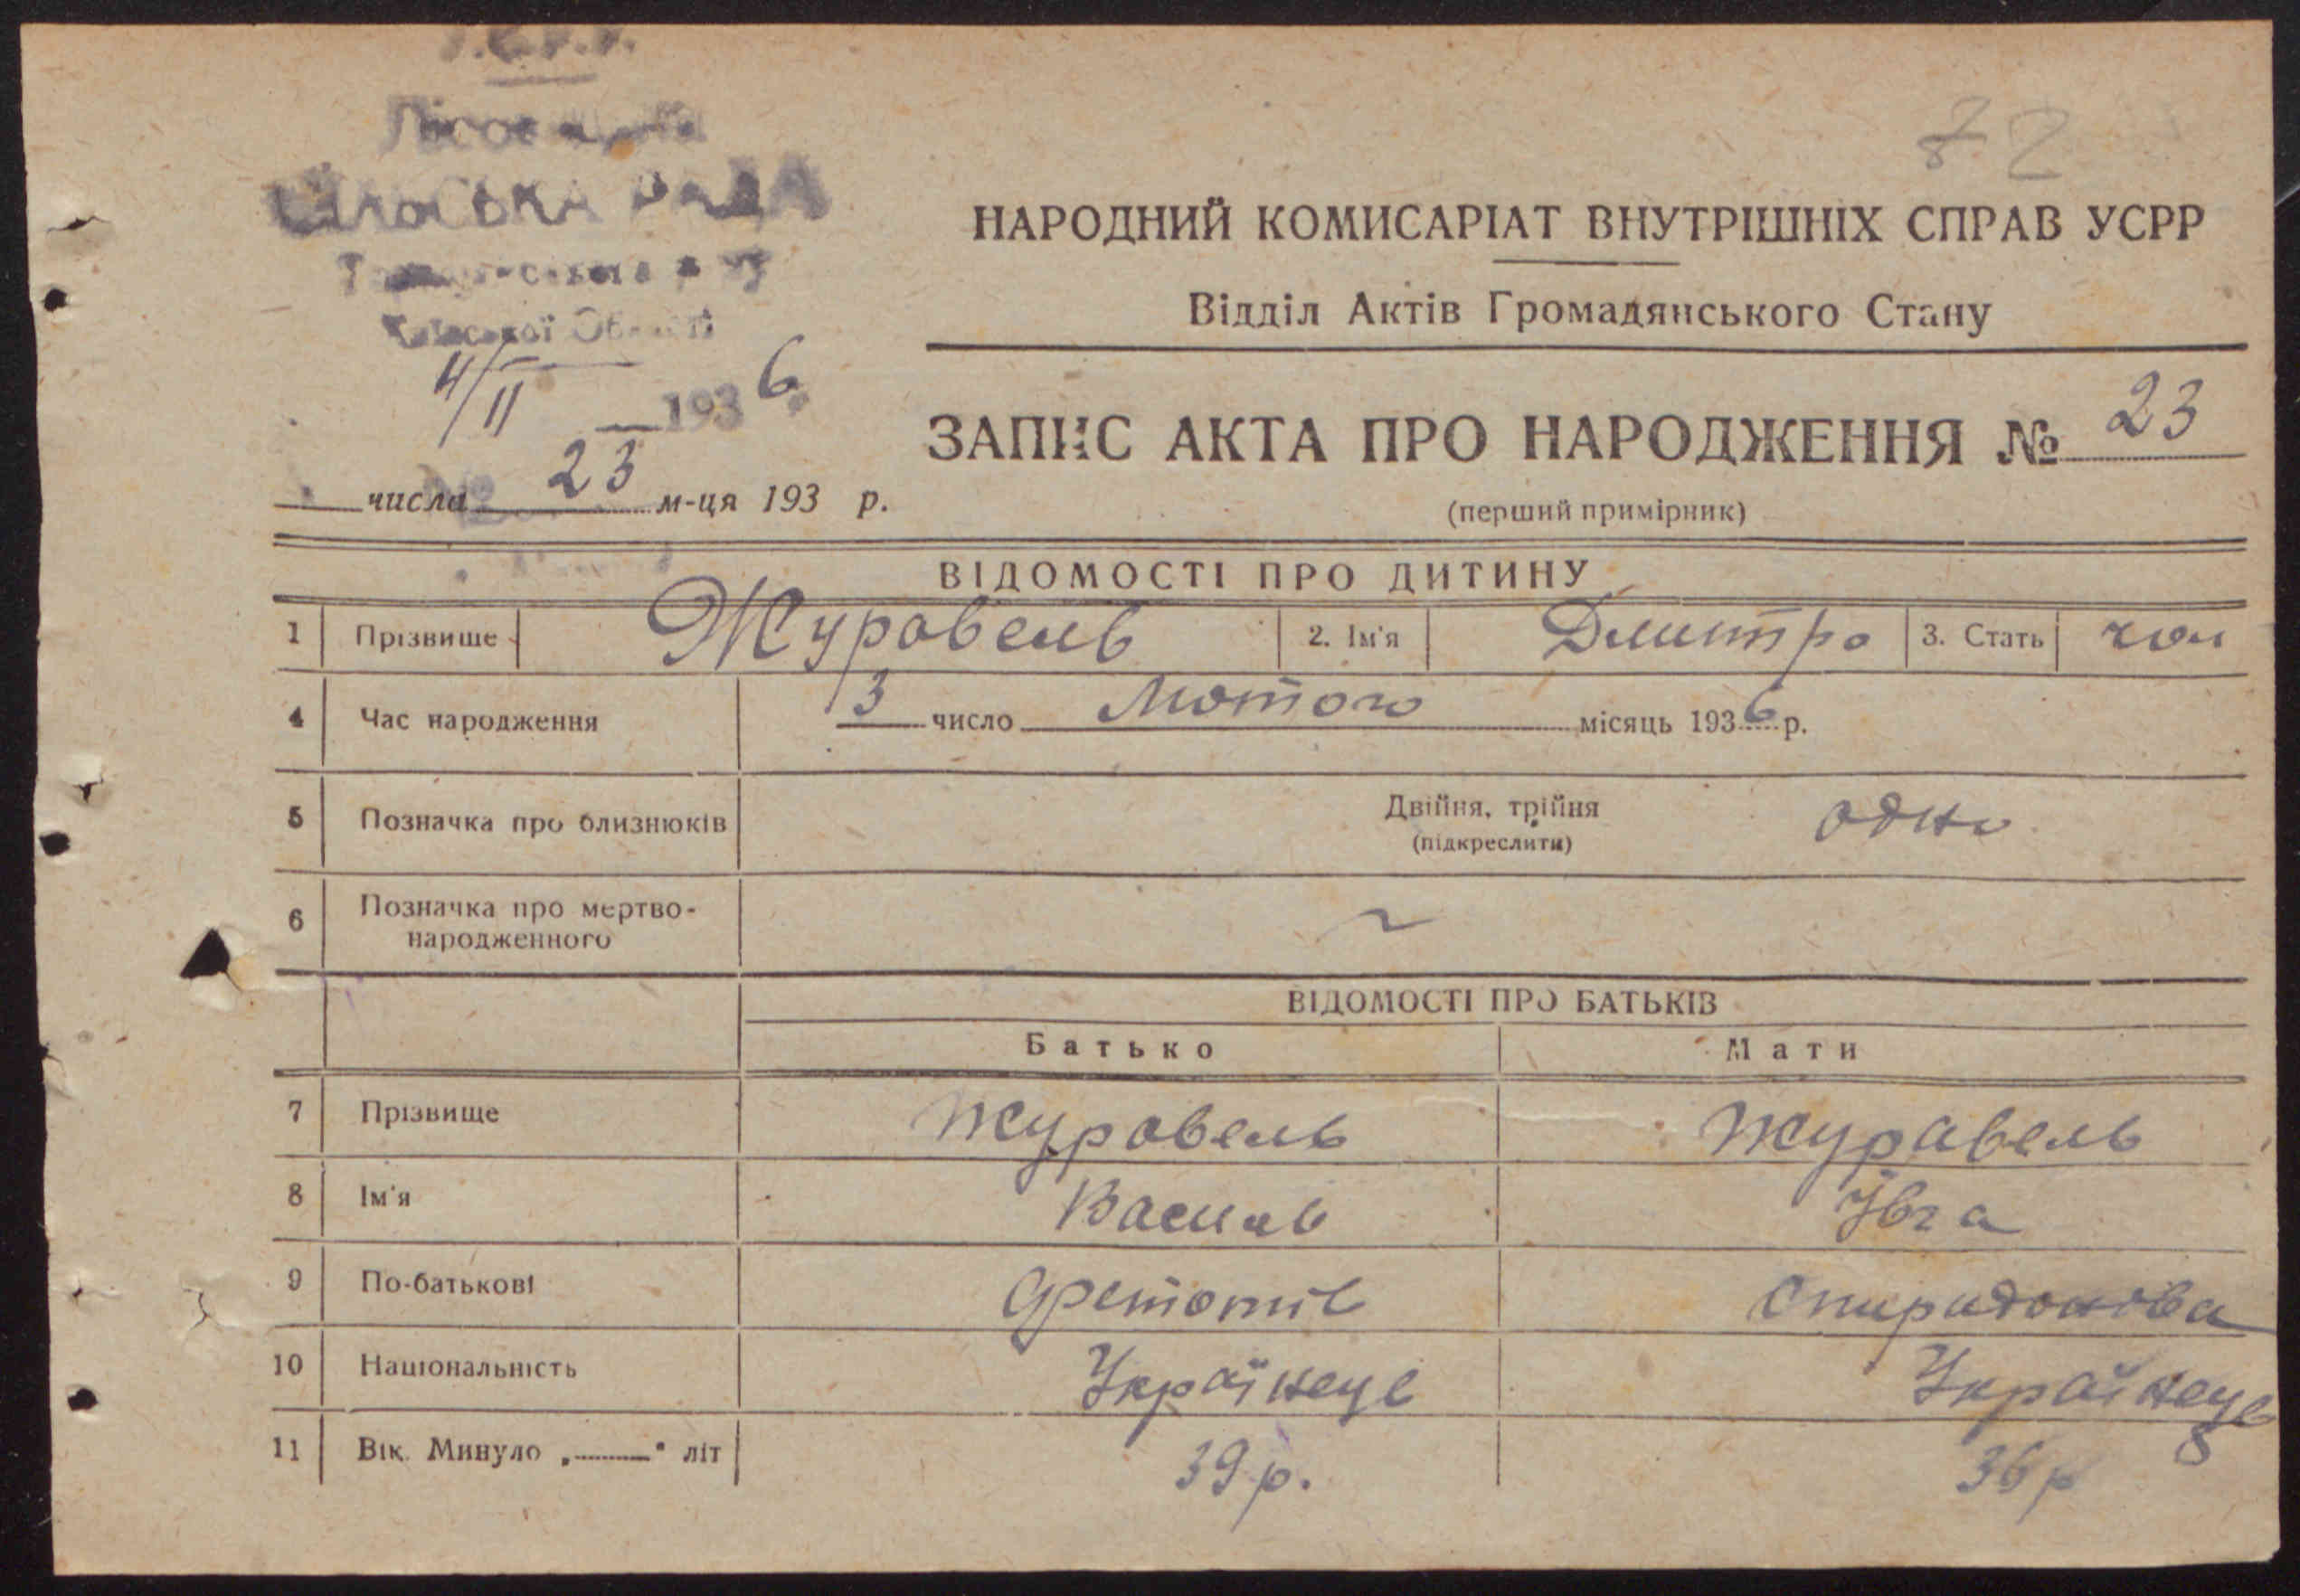 СІЛЬСЬКА РАДА
Київської Області
4/II 1936
23
числа м-ця 193 р.
72
НАРОДНИЙ КОМИСАРІАТ ВНУТРІШНІХ СПРАВ УСРР
Відділ Актів Громадянського Стану
ЗАПИС АКТА ПРО НАРОДЖЕННЯ № 23
(перший примірник)
ВІДОМОСТІ ПРО ДИТИНУ
1 Прізвище Журавель 2. Ім'я Дмитро 3. Стать чол
4 Час народження 3 число Лютого місяць 1936 р.
5 Позначка про близнюків Двійня, трійня одно
(підкреслити)
6 Позначка про мертво-
народженного
ВІДОМОСТІ ПРО БАТЬКІВ
Батько Мати
7 Прізвище Журавель Журавель
8 Ім'я Василь Івга
9 По-батькові Спиридонова
10 Національність Українець Українець
11 Вік. Минуло „ " літ 39 р. 36 р